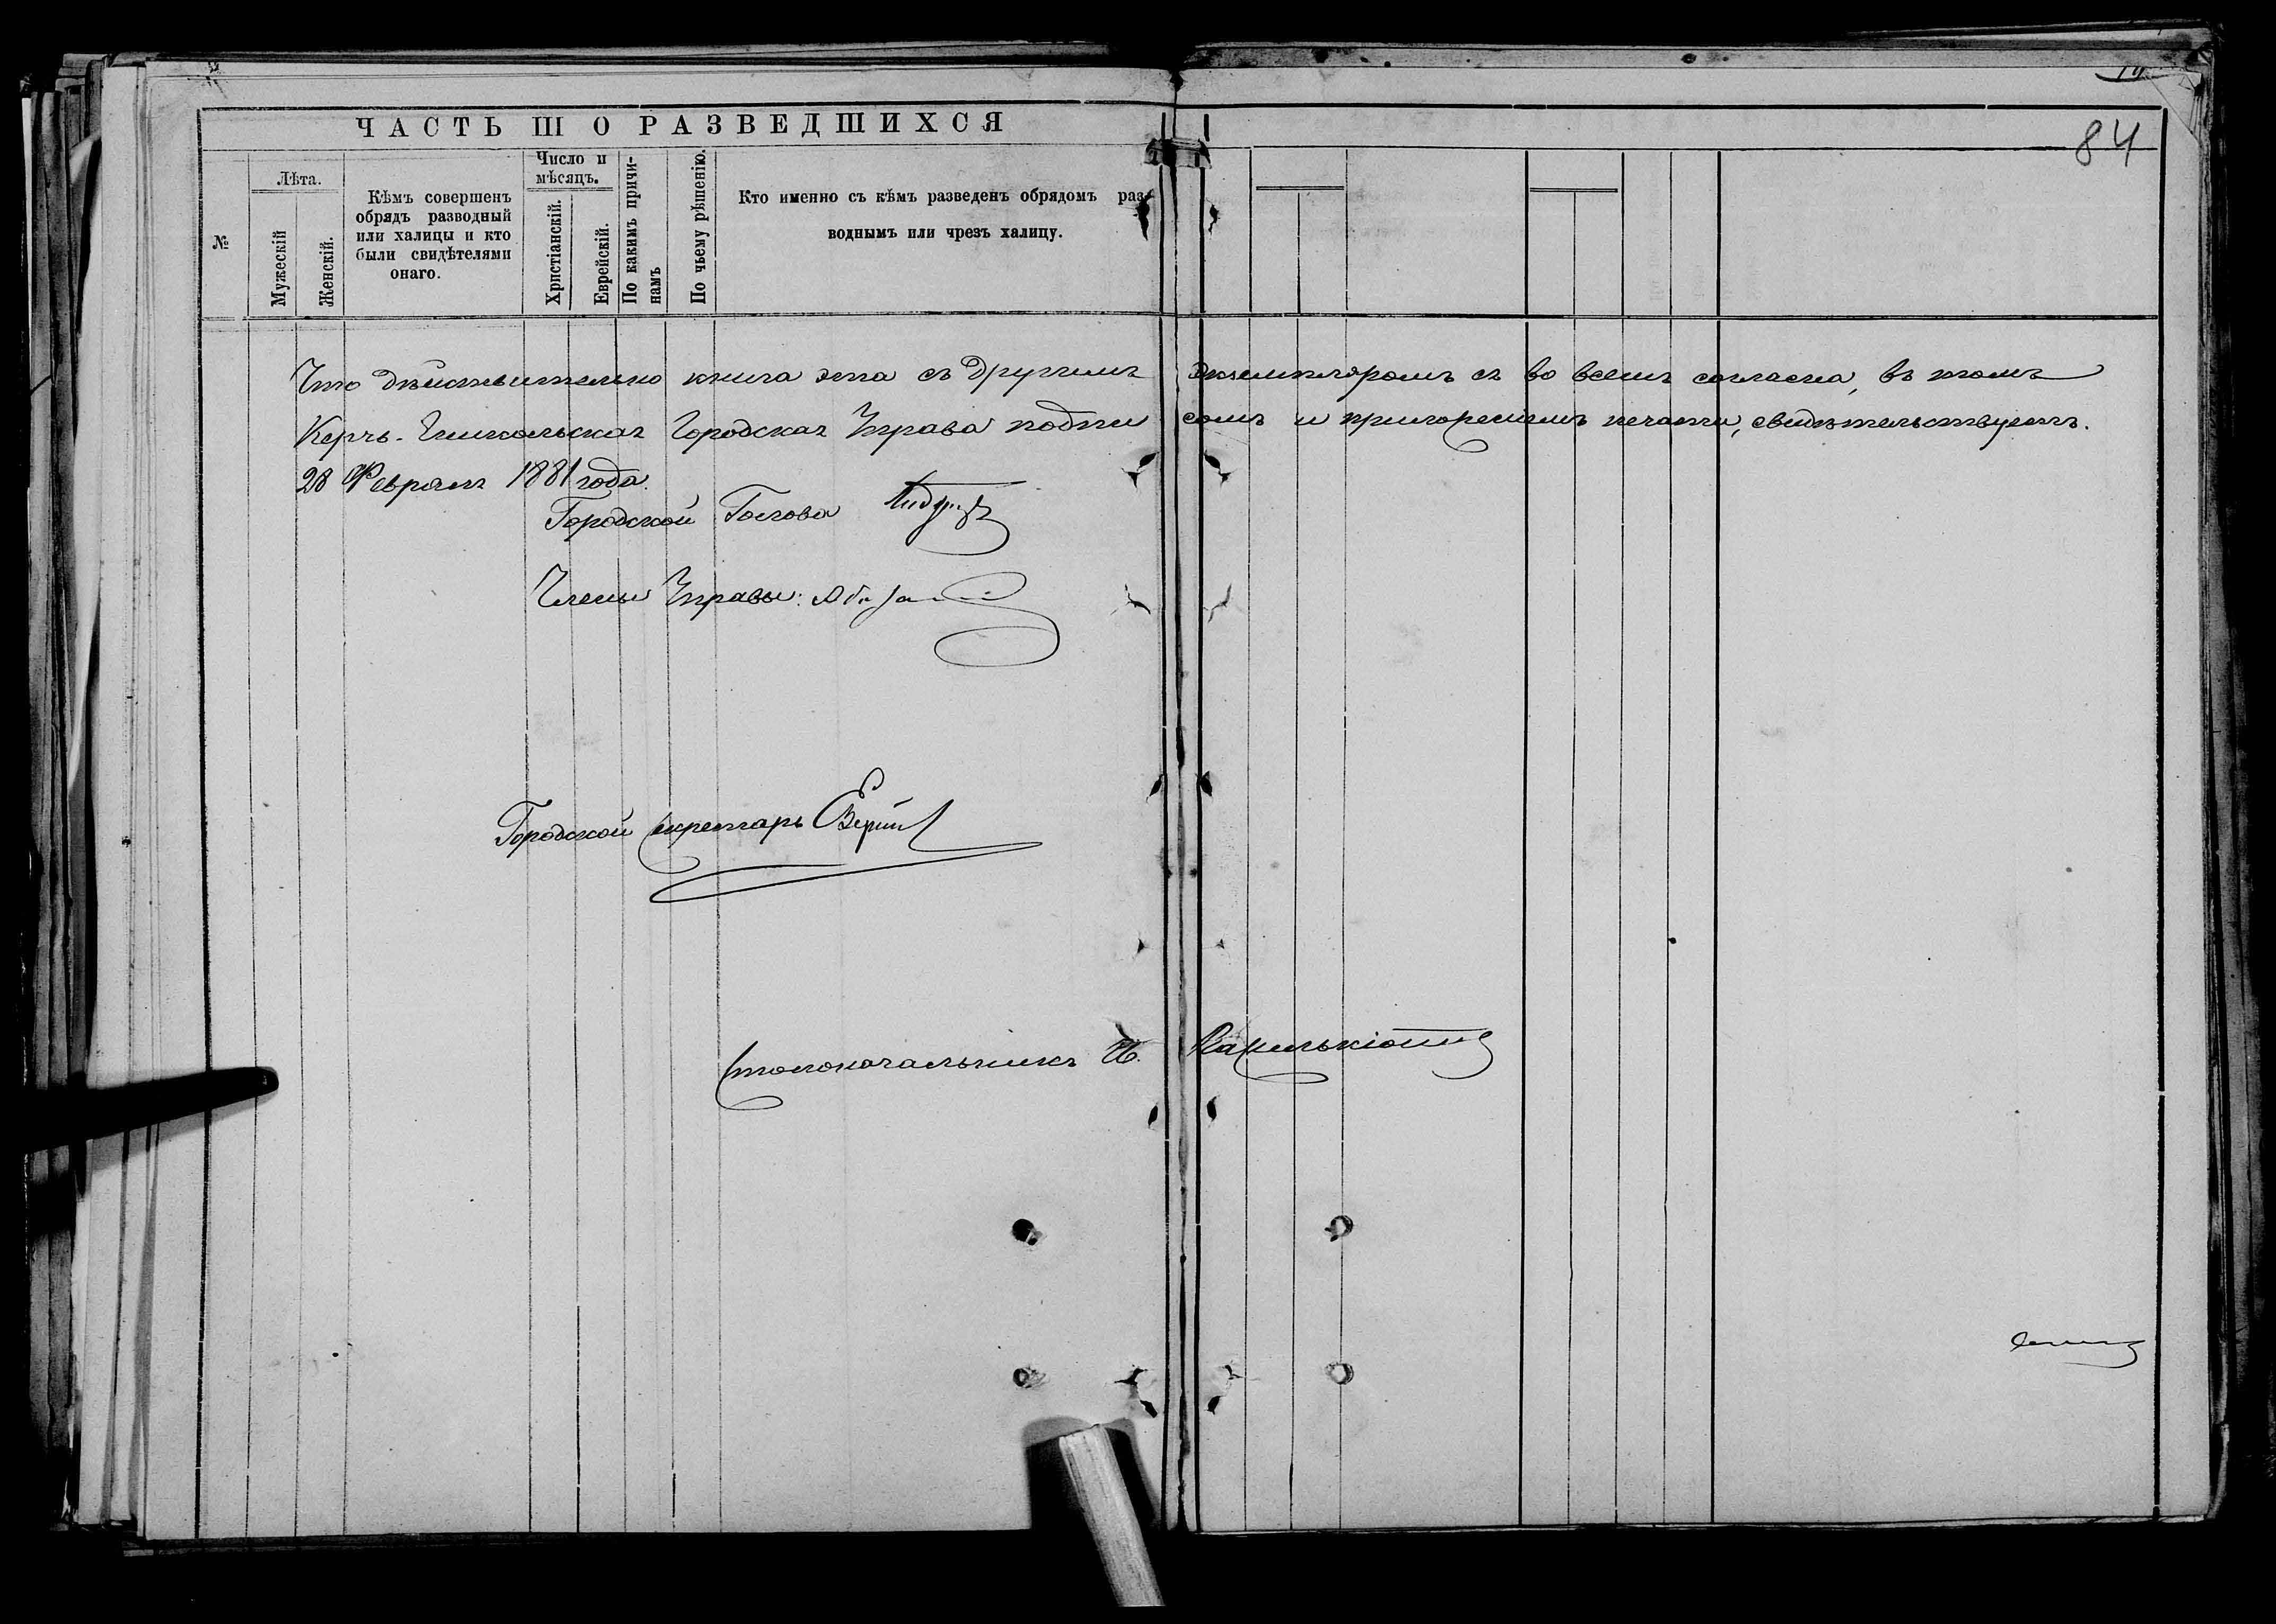 84
ЧАСТЬ III О РАЗВЕДШИХСЯ
№
Лѣта.
Мужескій
Женскій.
Кѣмъ совершенъ
обрядъ разводный
или халицы и кто
были свидѣтелями
онаго.
Число и
мѣсяцъ.
Христіанскій.
Еврейскій.
По какимъ причи-
намъ
По чьему рѣшенію.
Кто именно съ кѣмъ разведенъ обрядомъ раз-
воднымъ или чрезъ халицу.
Что дѣйствительно книга эта съ другимъ экземпляромъ ея во всемъ согласна, въ томъ
Керчь-Еникольская Городская Управа подписомъ и приложеніемъ печати, свидѣтельствуетъ.
28 Февраля 1881 года.
Городской Голова
Члены Управы:
Городской Секретарь
Столоначальникъ